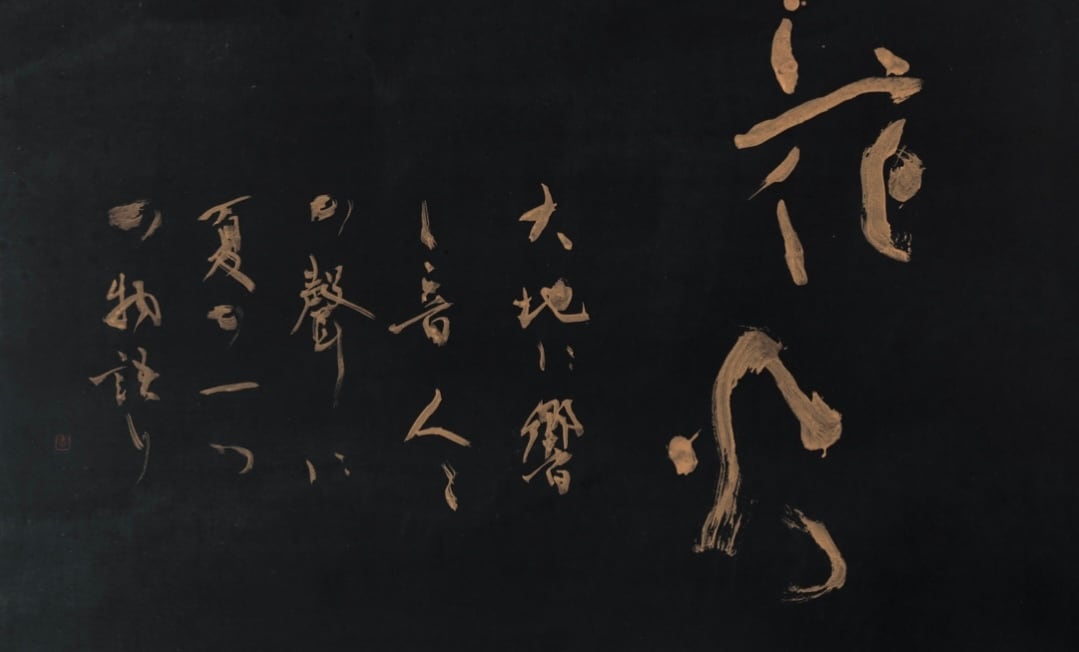 花火
大地に響
く音人々
の聲に
夏の一つ
の物語り